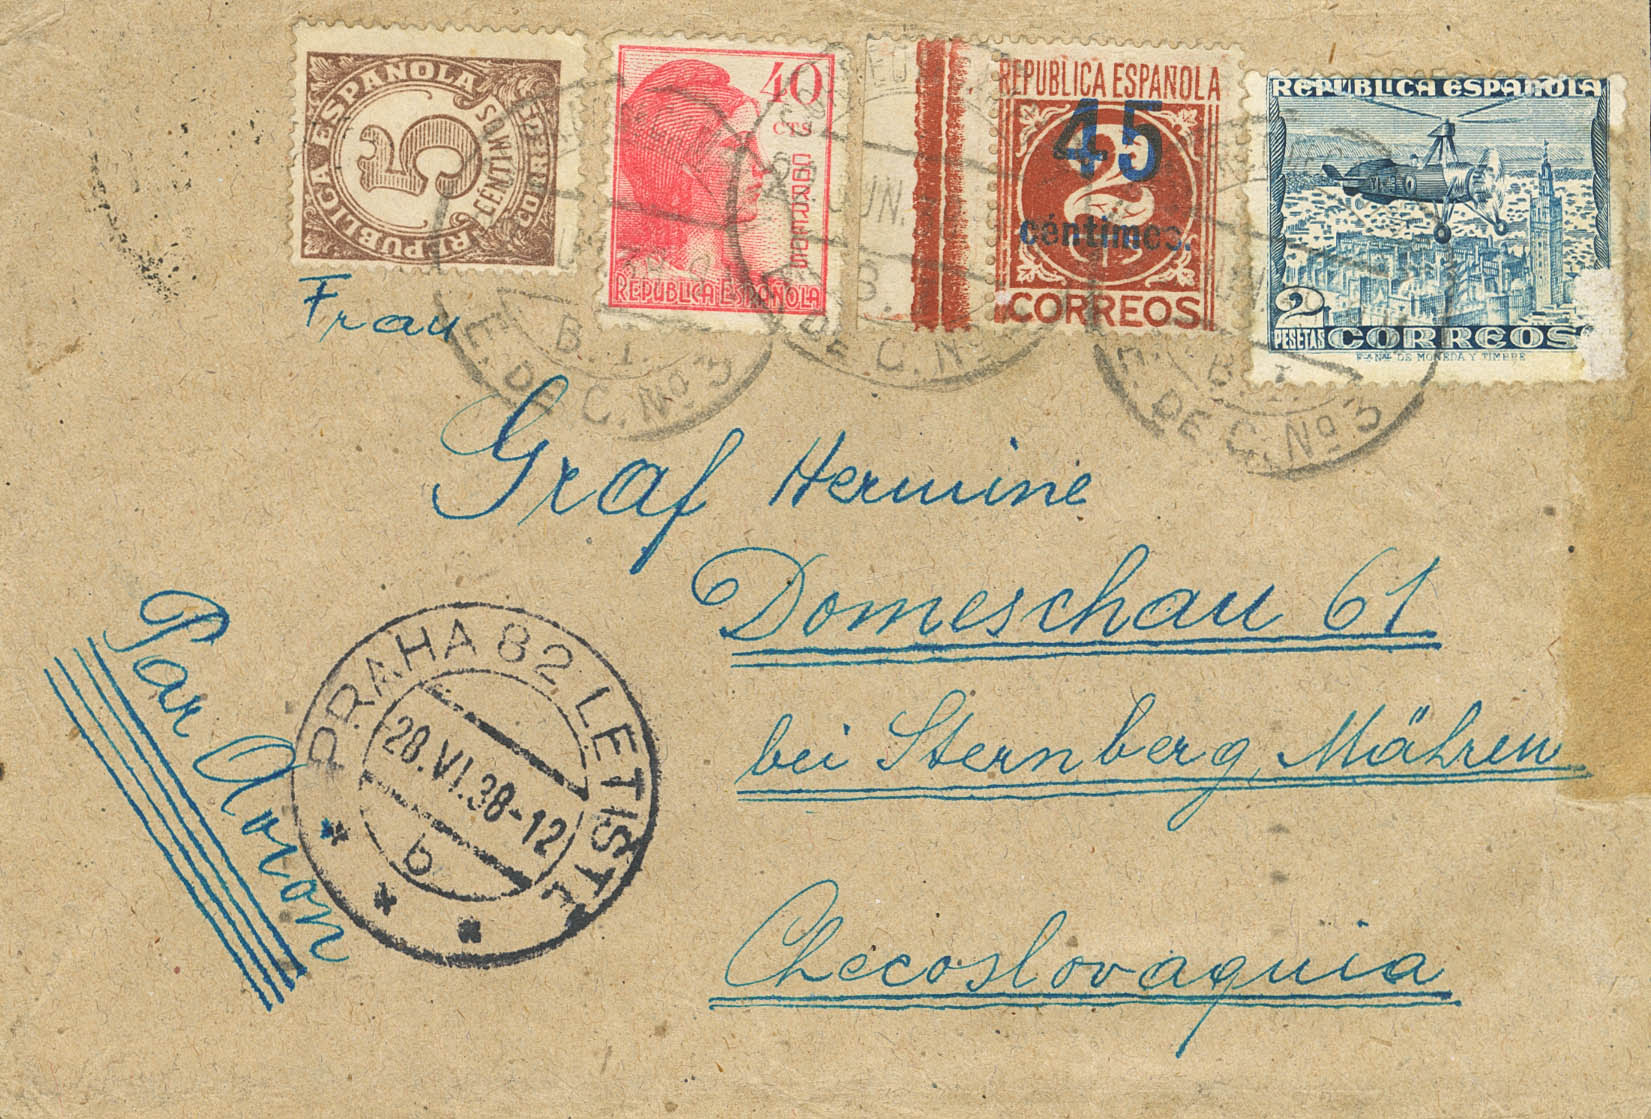 REPUBLICA ESPAÑOLA
5
CENTIMOS
CORREOS
40
CTS
CORREOS
REPUBLICA ESPAÑOLA
REPUBLICA ESPAÑOLA
45
2
céntimos.
CORREOS
REPUBLICA ESPAÑOLA
2
PESETAS CORREOS
F.ª NAL. DE MONEDA Y TIMBRE
B. I.
E. DE C. Nº 3
JUN.
B.
DE C. Nº
B. I.
E. DE C. Nº 3
Frau
Graf Hermine
Domeschau 61
bei Sternberg, Mähren
Checoslovaquia
Par Avion
PRAHA 82 LETIŠTĚ
28.VI.38-12
b